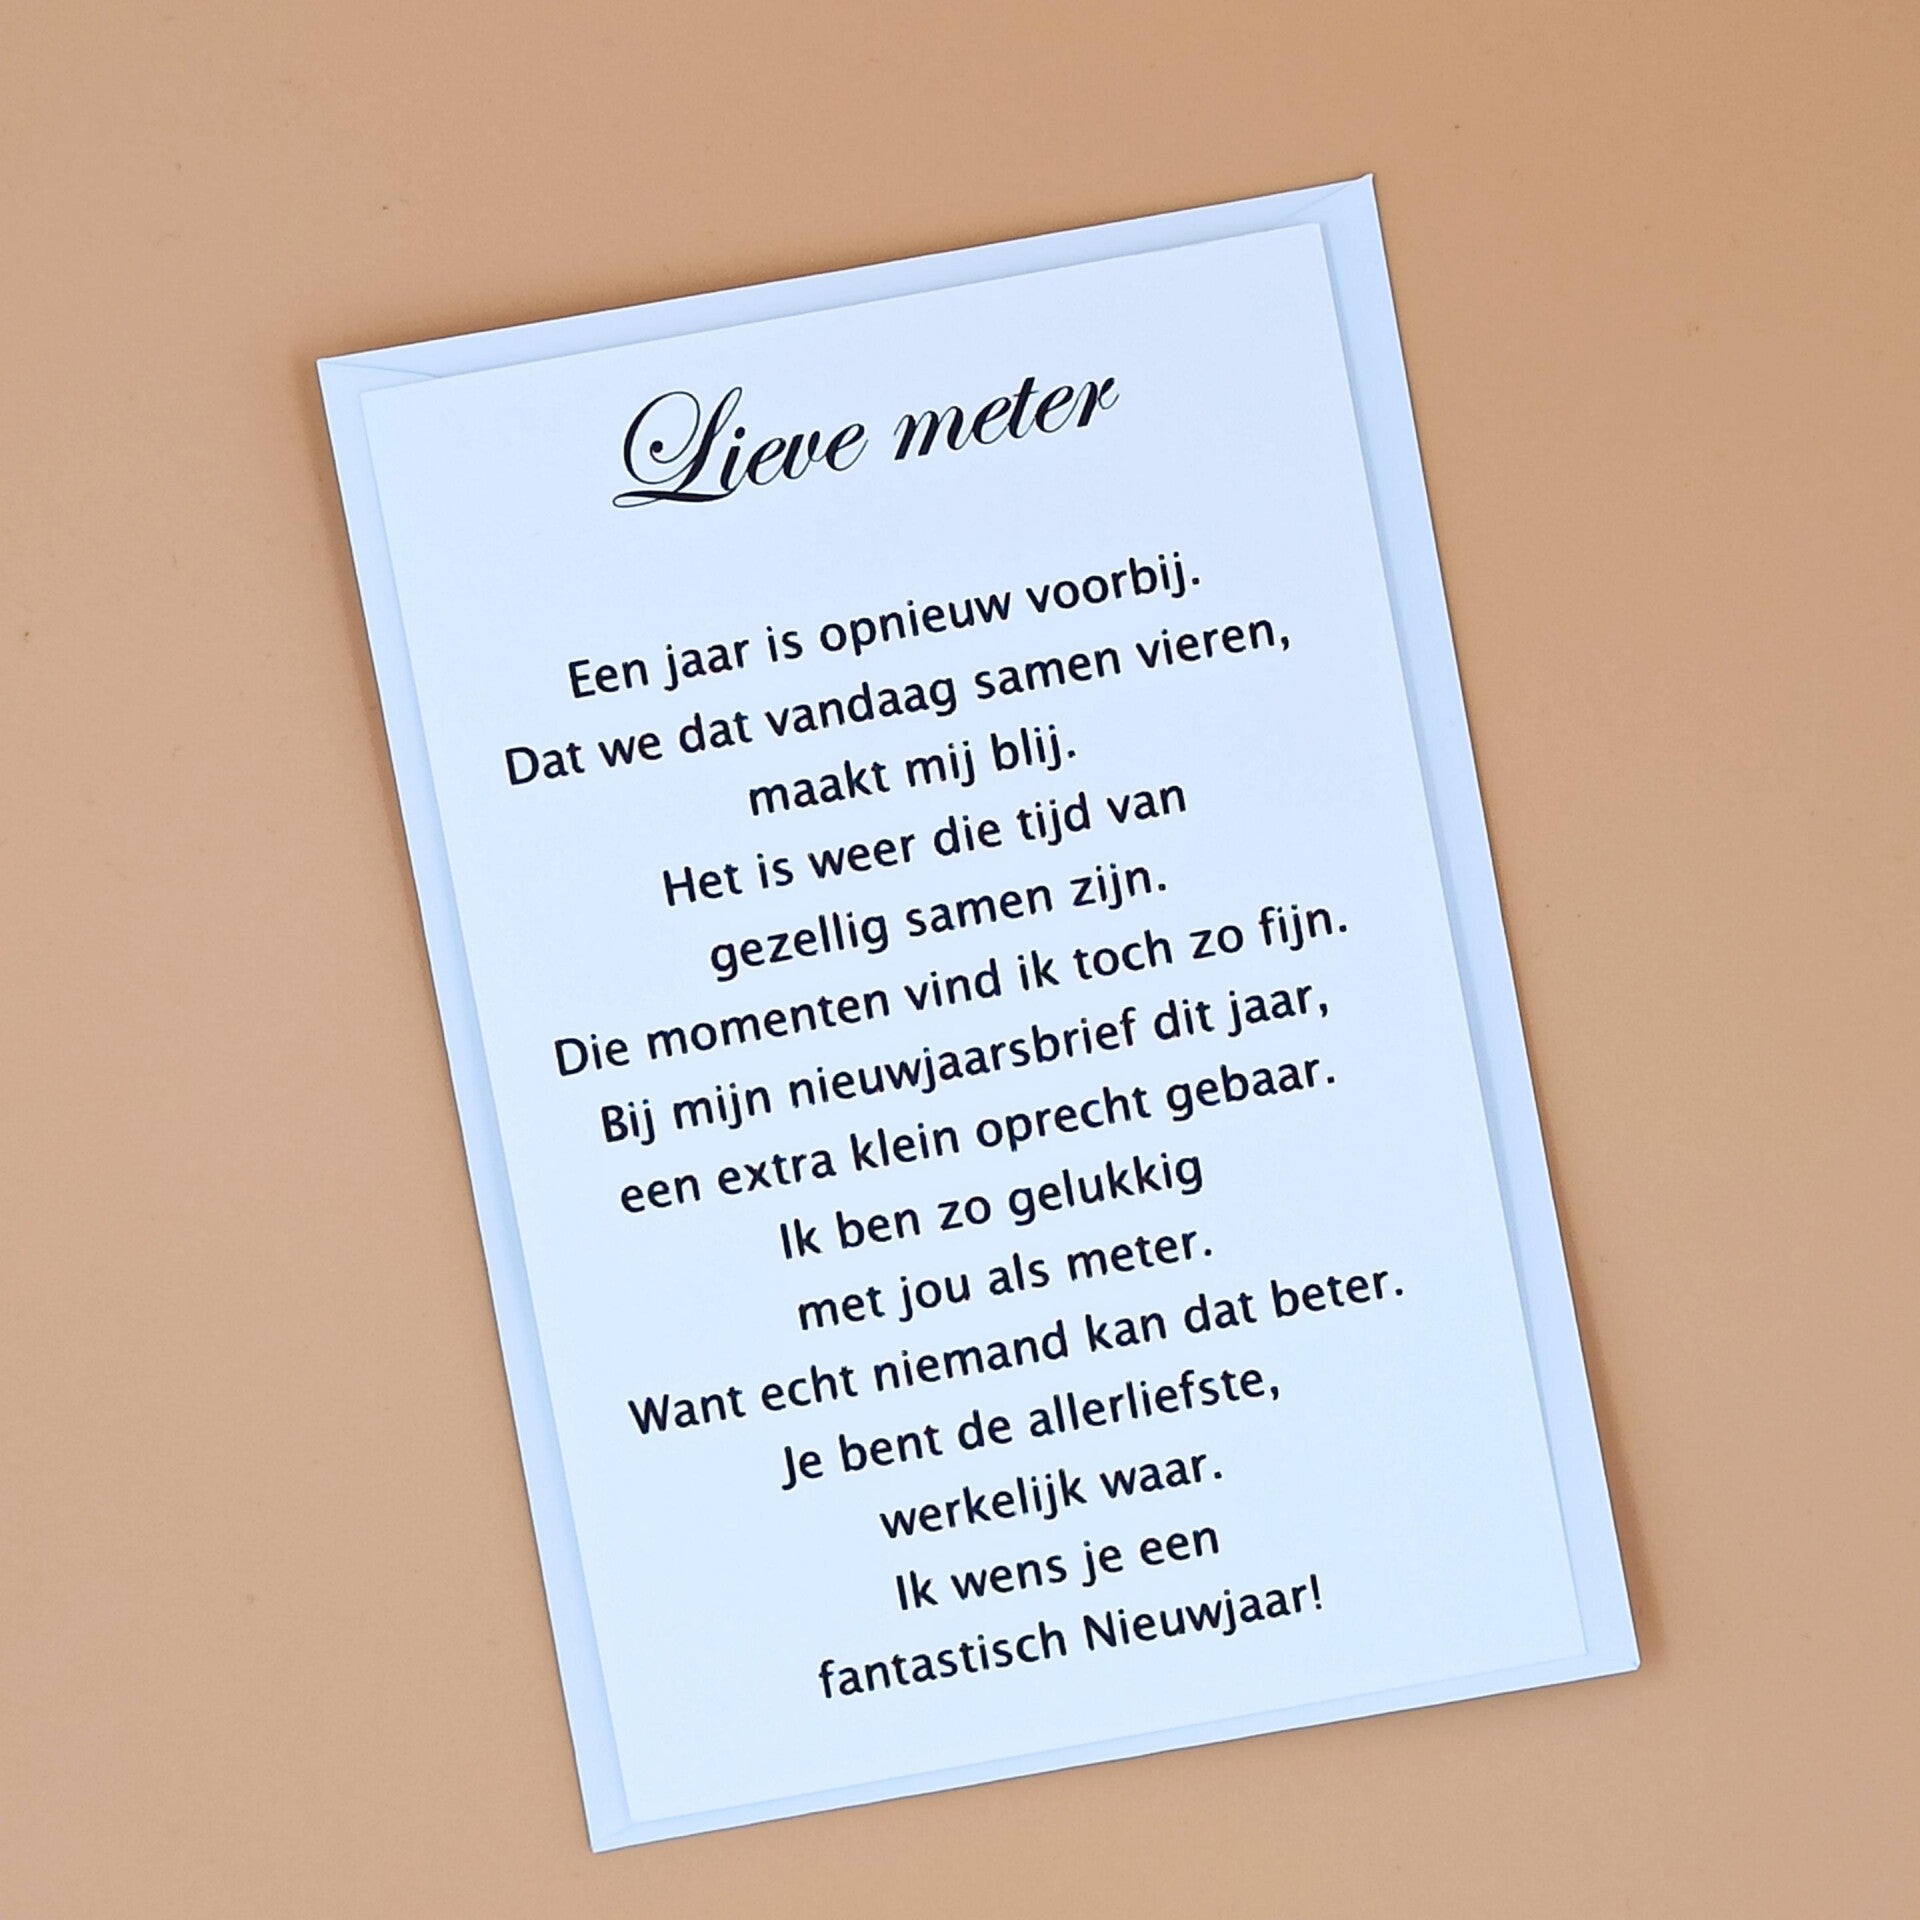 Lieve meter
Een jaar is opnieuw voorbij.
Dat we dat vandaag samen vieren,
maakt mij blij.
Het is weer die tijd van
gezellig samen zijn.
Die momenten vind ik toch zo fijn.
Bij mijn nieuwjaarsbrief dit jaar,
een extra klein oprecht gebaar.
Ik ben zo gelukkig
met jou als meter.
Want echt niemand kan dat beter.
Je bent de allerliefste,
werkelijk waar.
Ik wens je een
fantastisch Nieuwjaar!